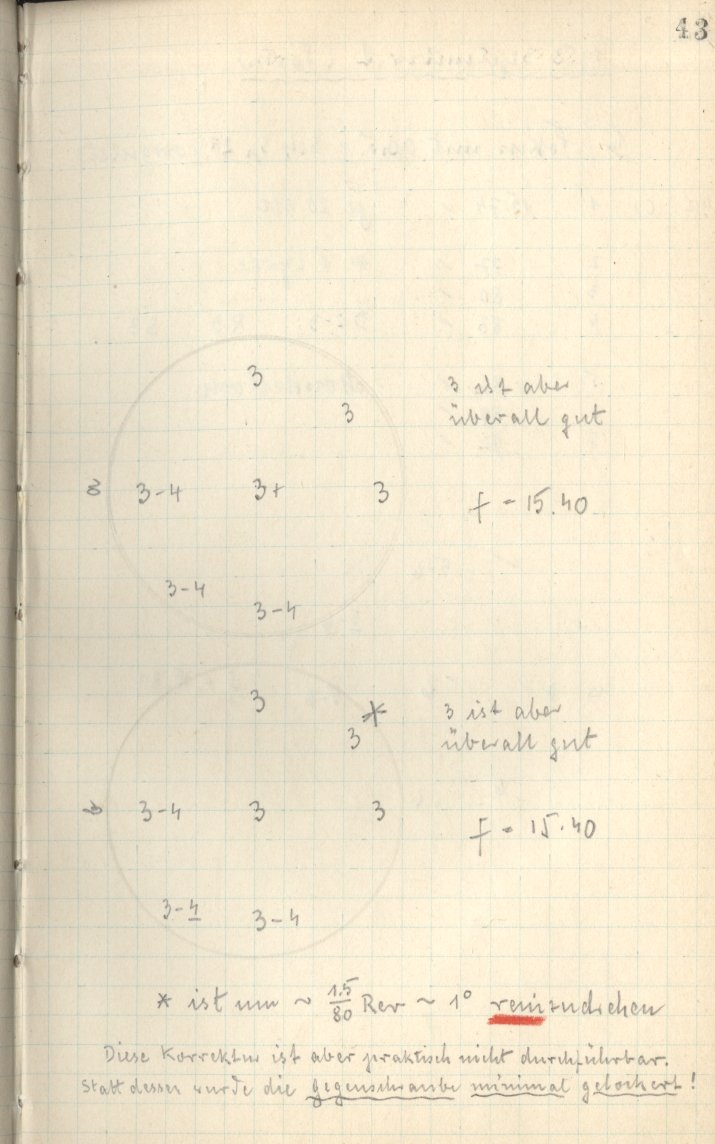 43
3
3
3 ist aber
überall gut
3-4 3+ 3
f = 15.40
3-4
3-4
3
*
3
3 ist aber
überall gut
3-4 3 3
f = 15.40
3-4 3-4
* ist um ~ 1.5/80 Rev ~ 1° reinzudrehen
Diese Korrektur ist aber praktisch nicht durchführbar.
Statt dessen wurde die Gegenschraube minimal gelockert!